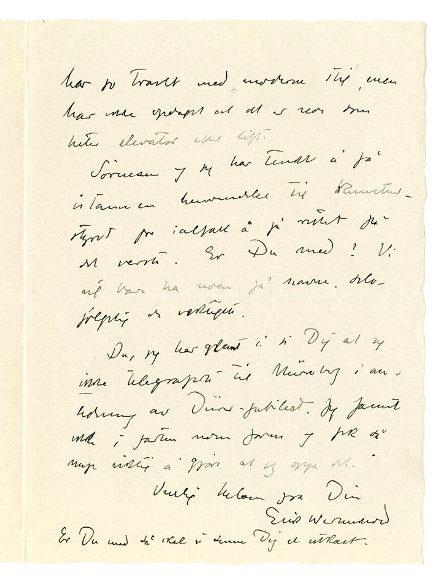 har so travlt med „moderne stil", men
har ikke opdaget at det er noe som
heter elevator eller lift.
Sørensen og jeg har tenkt å få
istann en henvendelse til
styret for ialfall å få rettet på
det verste. Er Du med? Vi
vil bare ha noen få navne,
de viktigste.
Du, jeg har glemt å si Dig at jeg
ikke telegraferte til Nürnberg i an-
ledning av Dürer-jubileet. Jeg
ikke i farten noen form og fik så
mye viktig å gjøre at jeg
Venlig hilsen fra Din
Erik Werenskiold
Er Du med så skal vi sende Dig et utkast.